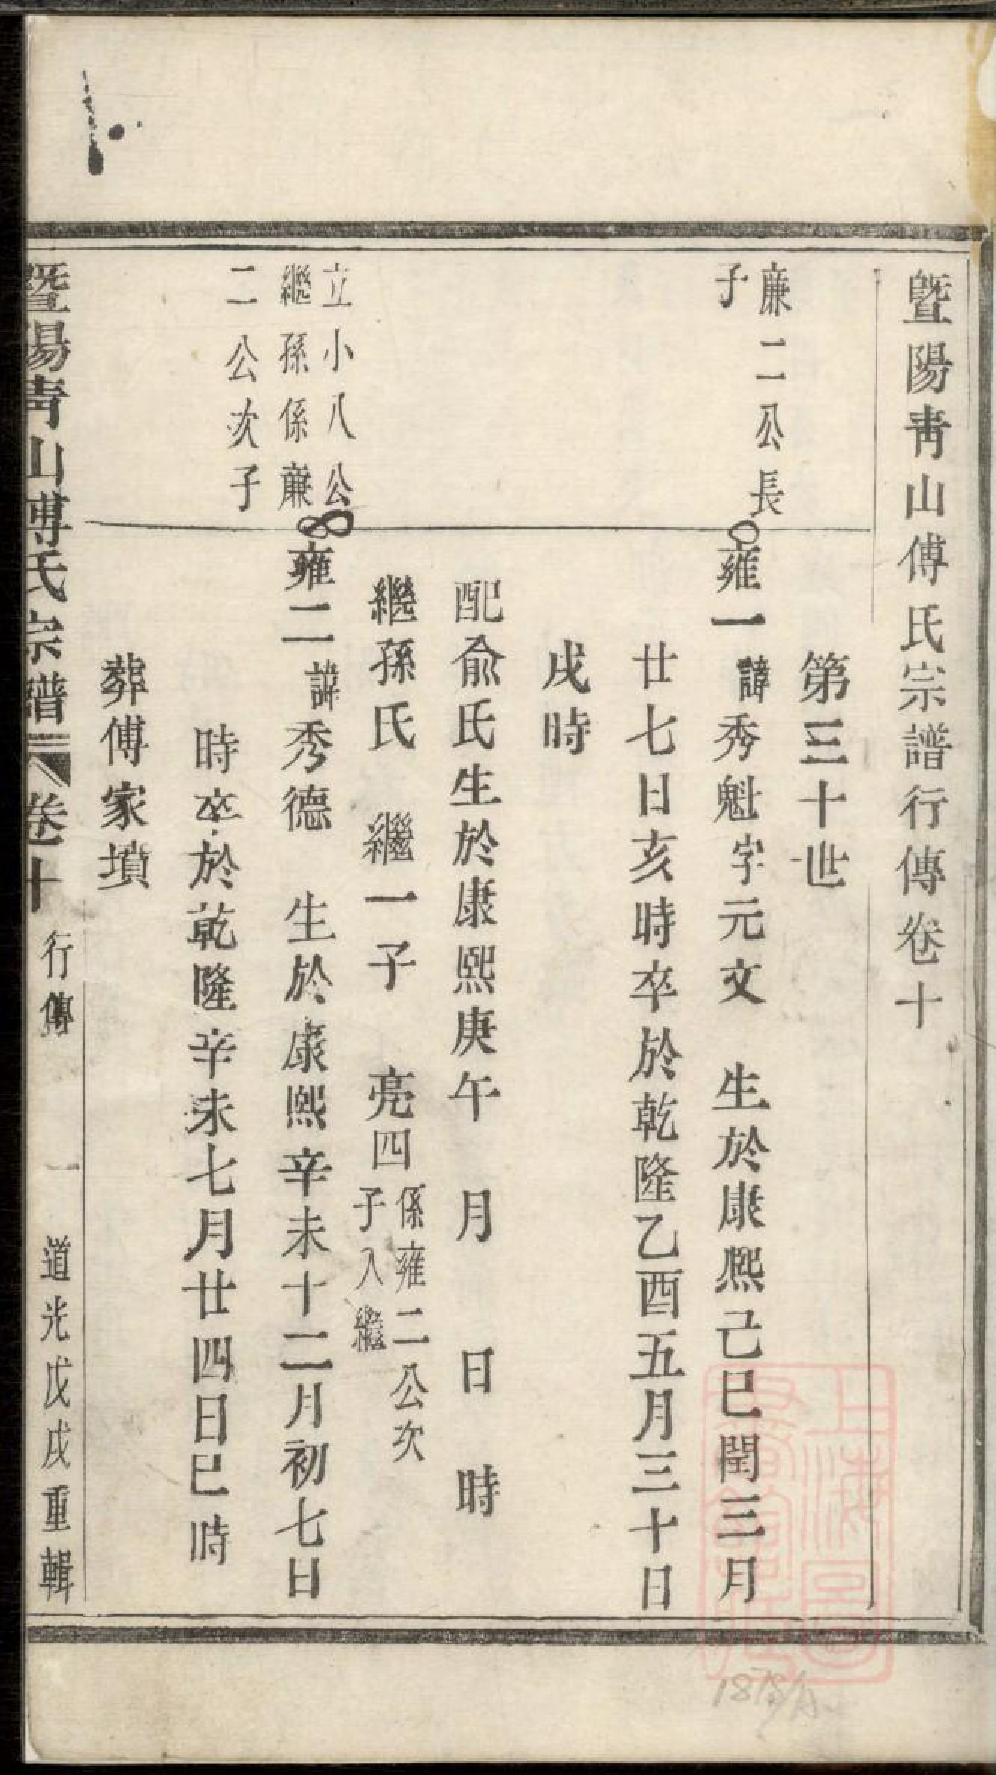 暨陽青山傅氏宗譜行傳卷十
第三十世
廉二公長
子
雍一諱秀魁字元文 生於康熙己巳閏三月
廿七日亥時卒於乾隆乙酉五月三十日
戌時
配俞氏生於康熙庚午 月 日 時
繼孫氏 繼一子 亮四係雍二公次
子入繼
立小八公
繼孫係蔗
二公次子
雍二諱秀德 生於康熙辛未十二月初七日
時卒於乾隆辛未七月廿四日巳時
葬傅家墳
暨陽青山傅氏宗譜 卷十 行傳 一 道光戊戌重輯